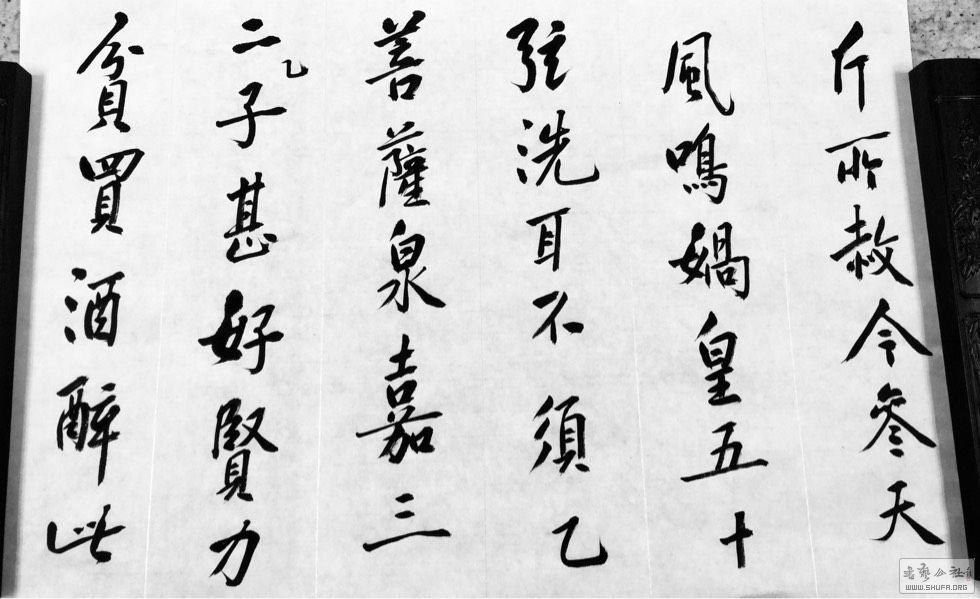 斤所赦今參天
風鳴媧皇五十
弦洗耳不須乙
菩薩泉嘉三
二乙子甚好賢力
貧買酒醉此
书艺公社
WWW.SHUFA.ORG